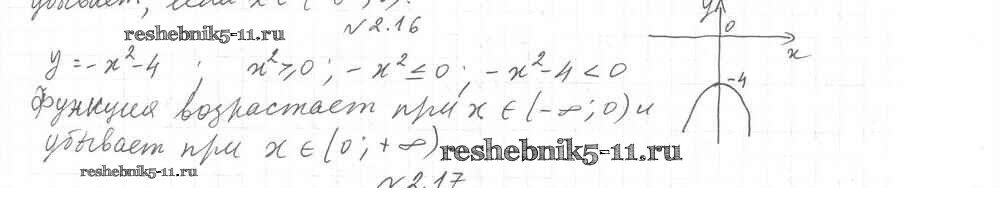 убывает, если x ∈ (
N2.16
reshebnik5-11.ru
y
0
x
-4
y = -x²-4 ; x² ⩾ 0 ; -x² ≤ 0 ; -x²-4 < 0
Функция возрастает при x ∈ (-∞; 0) и
убывает при x ∈ (0; +∞)
reshebnik5-11.ru
reshebnik5-11.ru
N2.17